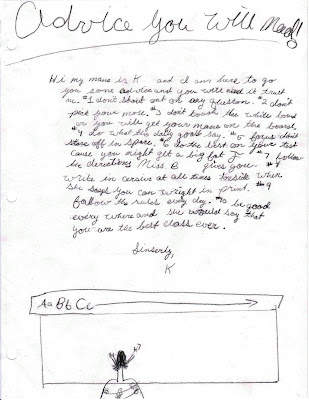 Advice You Will Need!
Hi my name is K and I am here to go
you some advice and you will need it trust
me. #1 don't shout out on any question. #2 don't
pick your nose. #3 don't touch the white board
or you will get your name on the board.
#4 do what the daily goals say. #5 focus don't
stare off in space. #6 do the best on your test
'cause you might get a big fat F- #7 follow
the directions Miss B gives you. #8
write in cersive at all times beside when
she says you can wright in print. #9
follow the rules every day. #10 be good
every where and she would say that
you are the best class ever.
Sinserly,
K
Aa Bb Cc